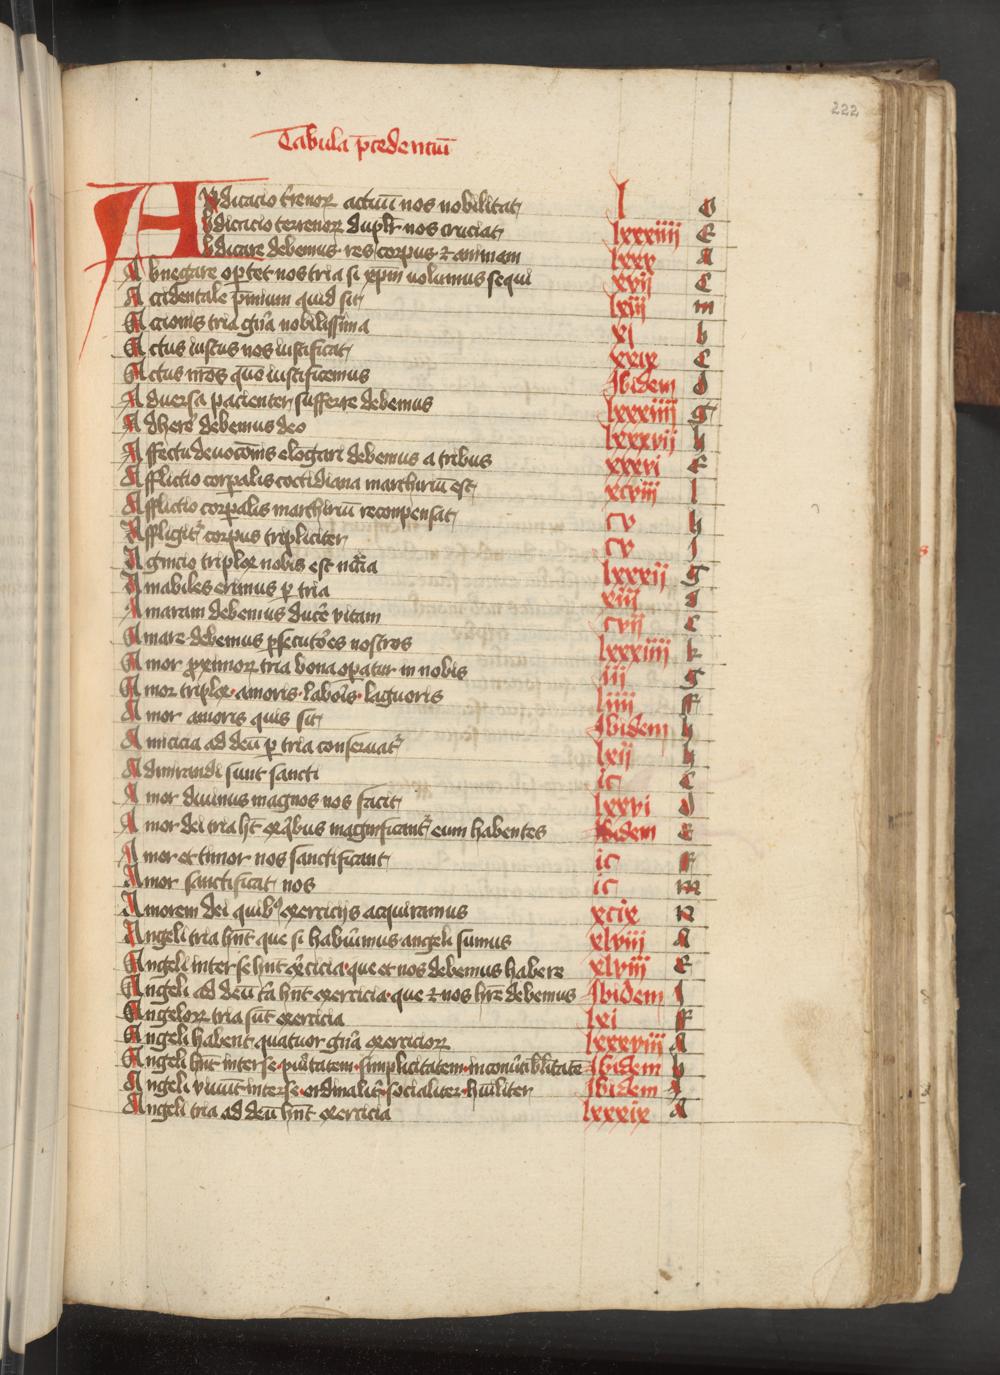 222
Tabula p̄cedenciū
Abdicacio t̓renoꝝ actiuū nos nobilitat l
Abdicacio terrenoꝝ duplr̄ nos cruciat lxxxiiii E
Abdicare debemus res corpus ⁊ animam lxxx A
Abnegare oportet nos tria si xp̄m volumus sequi xvij C
Accidentale p̄mium quid sit lxiij m
Accionis tria gn̄a nobilissima xl b
Actus iustus nos iustificat xxix C
Actus nr̄os que iustificemus Ibidem d
Aduersa pacienter sufferre debemus lxxxiiii g
Adherē debemus deo lxxxvij h
Affectu deuocōnis elōgari debemus a tribus xxxvi E
Afflictio corꝑalis coctidiana martiriū est xcviij l
Afflictio corꝑalis martiriū recompensat cv h
Affligit᷑ corpus tripliciter cv i
Agnicio triplex nobis est nc̄ia lxxxij g
Amabiles erimus ꝑ tria xiij d
Amaram debemus ducē vitam cvij C
Amare debemus ꝑsecutōes nostros lxxxiiii k
Amor ꝓximoꝝ tria bona oꝑatur in nobis iij g
Amor triplex amoris labōis laguoris liiij ff
Amor amoris quis sit Ibidem h
Amicicia ad deū ꝑ tria conseruat᷑ lxij h
Admirandi sunt sancti ic C
Amor diuinus magnos nos facit lxxvi d
Amor dei tria ht̄ ex q̄bus magnificant᷑ eum habentes Ibidem E
Amor et timor nos sanctificant ic F
Amor sanctificat nos ic m
Amorem dei quibꝰ exercicijs acquiramus xcix N
Angeli tria hn̄t que si habuim̄us angeli sumus xlviij A
Angeli inter se hn̄t ex̄cicia que et nos debemus habere xlviij E
Angeli ad deū t̄a hn̄t exercicia que ⁊ nos hr̄e debemus Ibidem l
Angeloꝝ tria sūt exercicia lxi ff
Angeli habent quatuor gn̄a exercicioꝝ lxxxviij A
Angeli hn̄t inter se puritatem simplicitatem Ibidem h
Angeli viuūt inter se ordinalit̓ socialiter hūiliter Ibidem
Angeli tria ad deū hn̄t exercicia lxxxix A